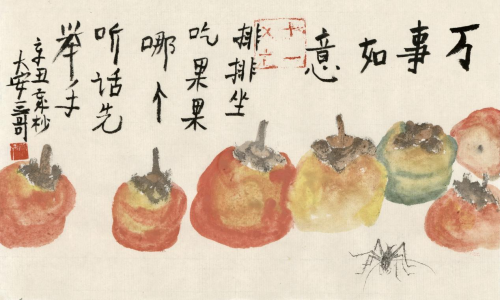 万事如意
排排坐
吃果果
哪个
听话先
举手
辛丑杪
大安三哥